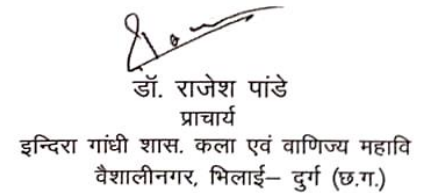 डॉ. राजेश पांडे
प्राचार्य
इन्दिरा गांधी शास. कला एवं वाणिज्य महावि
वैशालीनगर, भिलाई– दुर्ग (छ.ग.)